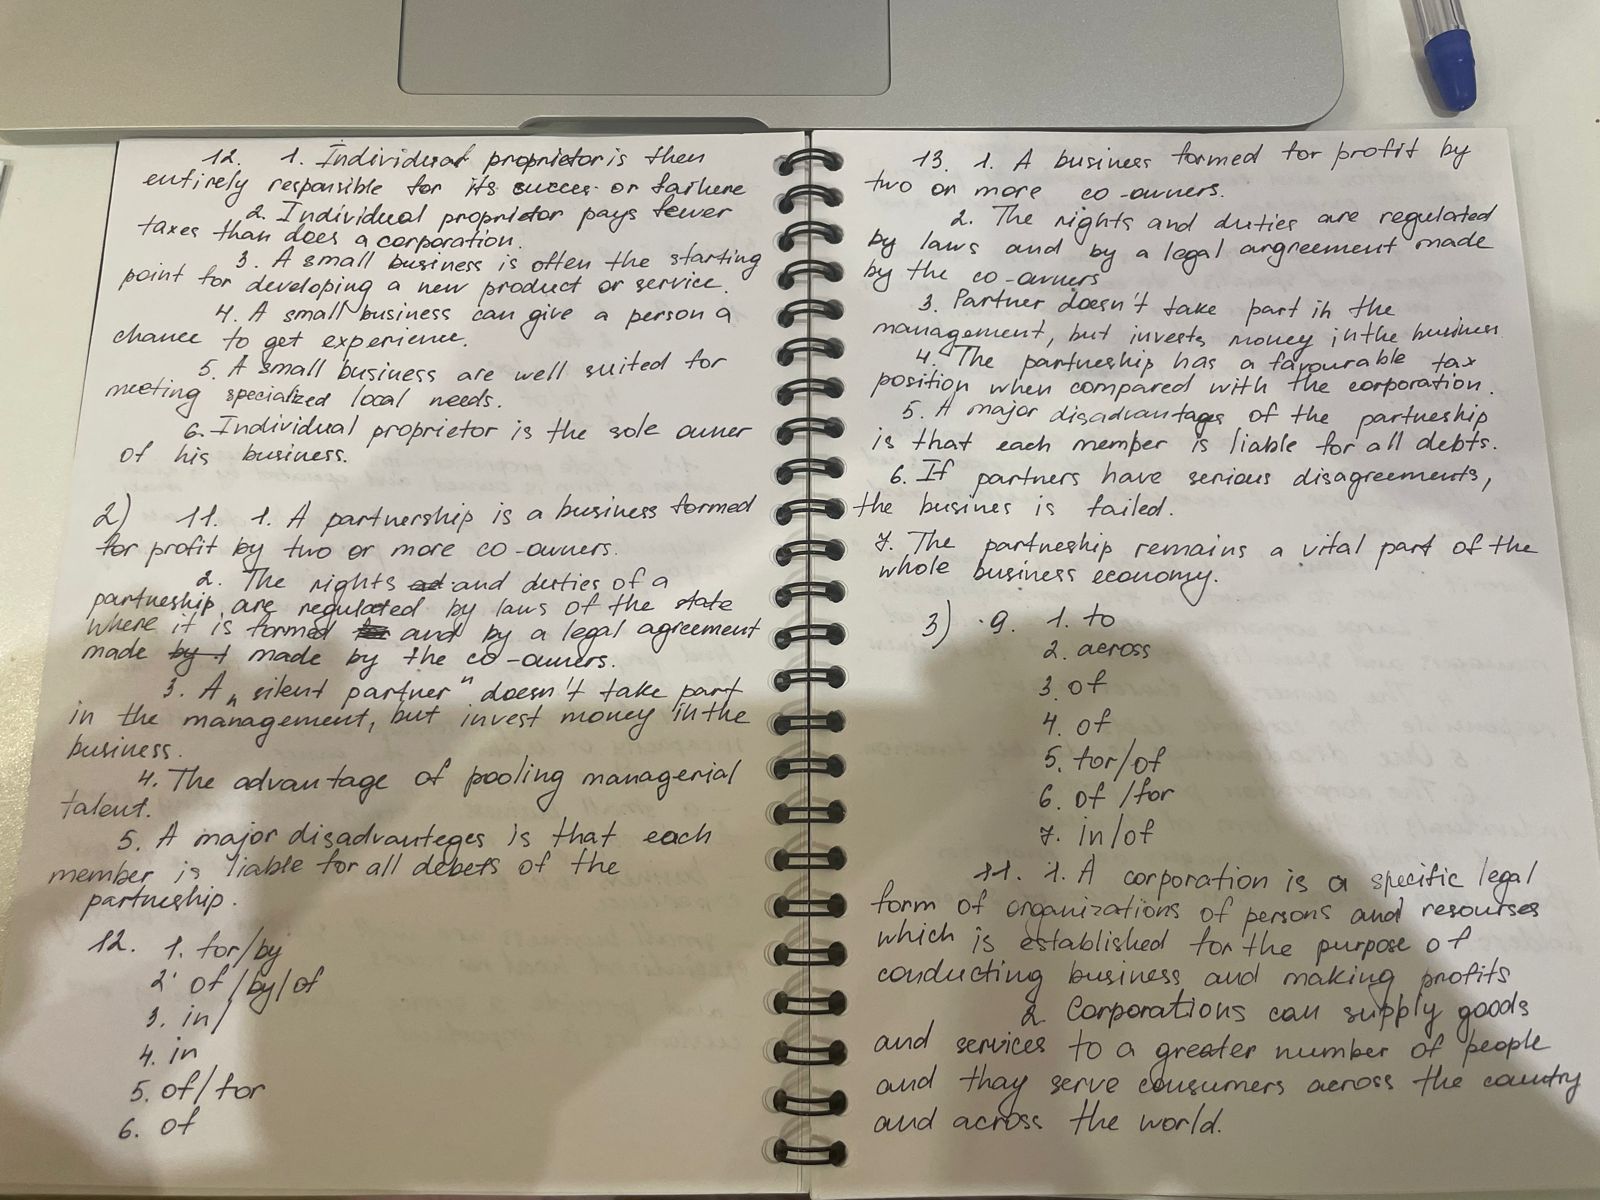 12. 1. Individual proprietor is then
entirely responsible for its succes or failure
2. Individual proprietor pays fewer
taxes than does a corporation.
3. A small business is often the starting
point for developing a new product or service.
4. A small business can give a person a
chance to get experience.
5. A small business are well suited for
meeting specialized local needs.
6. Individual proprietor is the sole owner
of his business.
2) 11. 1. A partnership is a business formed
for profit by two or more co-owners.
2. The rights and duties of a
partneship are regulated by laws of the state
where it is formed and by a legal agreement
made by t made by the co-owners.
3. A „silent partner" doesn't take part
in the management, but invest money in the
business.
4. The advantage of pooling managerial
talent.
5. A major disadvanteges is that each
member is liable for all debets of the
partneship.
12. 1. for/by
2. of/by/of
3. in/
4. in
5. of/for
6. of
13. 1. A business formed for profit by
two or more co-owners.
2. The rights and duties are regulated
by laws and by a legal argreement made
by the co-owners
3. Partner doesn't take part in the
management, but invests money in the business
4. The partneship has a favourable tax
position when compared with the corporation.
5. A major disadvantages of the partneship
is that each member is liable for all debts.
6. If partners have serious disagreements,
the busines is failed.
7. The partneship remains a vital part of the
whole business economy.
3) 9. 1. to
2. across
3. of
4. of
5. for/of
6. of/for
7. in/of
11. 1. A corporation is a specific legal
form of organizations of persons and resourses
which is established for the purpose of
conducting business and making profits
2. Corporations can supply goods
and services to a greater number of people
and thay serve consumers across the country
and across the world.